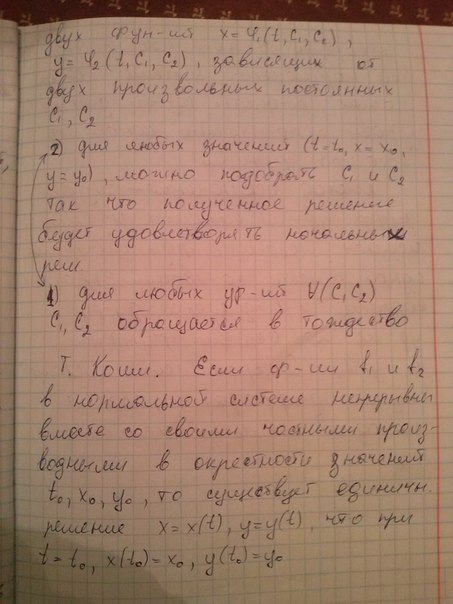 двух фун-ий x=φ₁(t,C₁,C₂),
y=φ₂(t,C₁,C₂), зависящих от
двух произвольных постоянных
C₁,C₂
2) для любых значений (t=t₀, x=x₀,
y=y₀), можно подобрать C₁ и C₂
так что полученное решение
будет удовлетворять начальным
реш.
1) для любых ур-ий ∀(C₁C₂)
C₁,C₂ обращается в тождество
Т. Коши. Если ф-ии f₁ и f₂
в нормальной системе непрерывны
вместе со своими частными произ-
водными в окрестности значений
t₀, x₀, y₀, то существует единичн.
решение x=x(t), y=y(t), что при
t=t₀, x(t₀)=x₀, y(t₀)=y₀